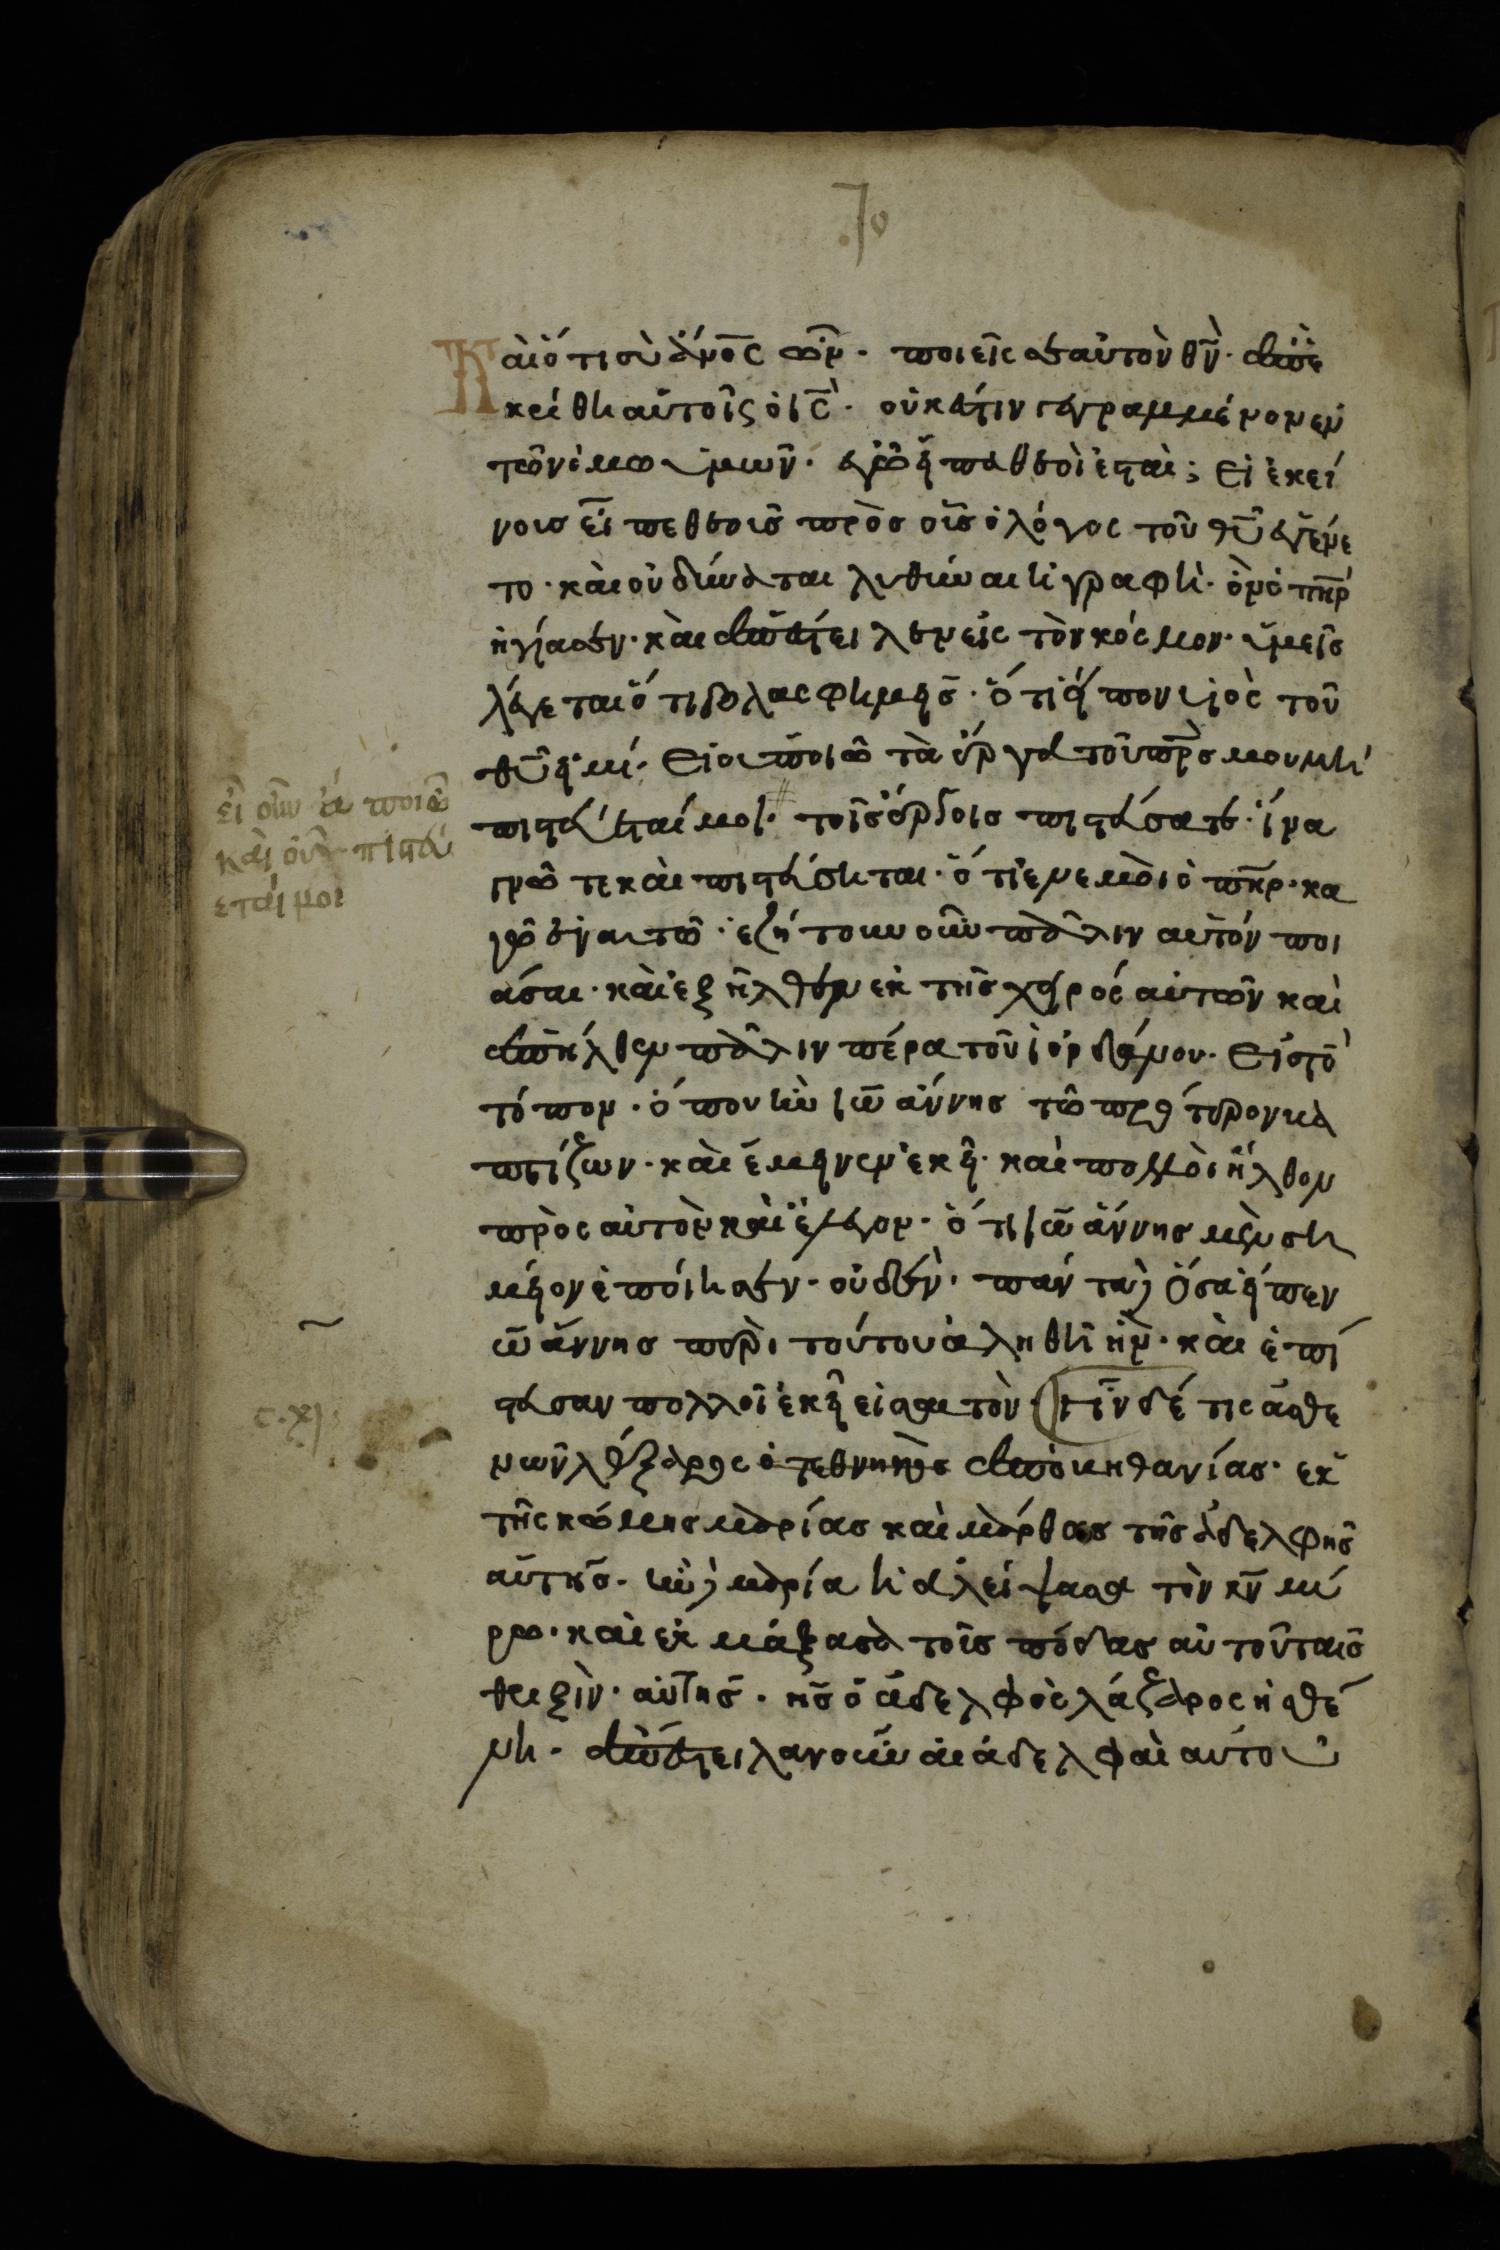 Καὶ ὅτι σὺ ἄν̅ο̅ς̅ ὢν· ποιεῖς σεαυτὸν θ̅ν̅· ἀπε
κρίθη αὐτοῖς ὁ ι̅ς̅· οὐκ ἔστιν γεγραμμένον ἐν
τῶ νόμω ὑμῶν· ἐγὼ εἶπα θεοὶ ἐσταὶ; Εἰ ἐκεί
νοισ εἶπε θεοισ πρὸσ οἶσ ὁ λόγος τοῦ θ̅υ̅ ἐγένε
το· καὶ οὐ δύναται λυθῆναι ἡ γραφή· ὃν ὁ π̅η̅ρ̅
ἡγίασεν· καὶ ἀπέστειλεν εἰς τὸν κόσμον· ὑμεῖσ
λέγεται ὅτι βλασφημεῖσ· ὅτι εἶπον υἱὸς τοῦ
θ̅υ̅ εἰμί· Εἰ οὐ ποιῶ τὰ ἔργα τοῦ π̅ρ̅σ̅ μου μὴ
πιστεύεταί μοι· τοῖσ ἔργοισ πιστεύσατε· ἵνα
γνῶτε καὶ πιστεύσηται· ὅτι ἐν ἐμοὶ ὁ π̅η̅ρ̅· κα
γὼ ἐν αυτῶ· ἐζήτουν οὖν πάλιν αὐτόν ποι
άσαι· καὶ ἐξῆλθεν ἐκ τῆσ χειρός αὐτῶν καὶ
ἀπῆλθεν πάλιν πέρα τοῦ ἰορδάνου· Εἰς τὸ
τόπον· ὅπου ἦν ἰωάννησ τῶ πρότερον βα
πτίζων· καὶ ἔμεινεν ἐκεῖ· καὶ πολλοὶ ἦλθον
πρὸς αὐτὸν καὶ ἔλεγον· ὅτι ἰωάννησ μὲν ση
μεῖον ἐποίησεν· οὐδέν· πάντα ὅσα εἶπεν
ἰωάννησ περὶ τούτου ἀληθῆ ἦν· καὶ ἐπί
στευσαν πολλοῖ ἐκεῖ εἰσ αυτὸν· ἦν δέ τις ἀσθε
νῶν λάζαρος ὁ τεθνηκὼσ ἀπὸ βηθανίας· ἐκ
τῆς κώμησ μαρίασ καὶ μάρθασ τῆσ ἀδελφησ
αὐτησ· ἦν μαρία ἡ ἀλείψασα τὸν κ̅ν̅ μύ
ρω· καὶ ἐκμάξασα τοῖσ πόδασ αὐτοῦ ταισ
θριξὶν αὐτησ· ησ ὁ ἀδελφὸς λάζαρος ἠσθέ
νη· ἀπέστειλαν οὖν αἱ ἀδελφαὶ αυτου
εἰ οὖν τὰ ποιῶ
καὶ οὐ πιστεύ
εταί μοι